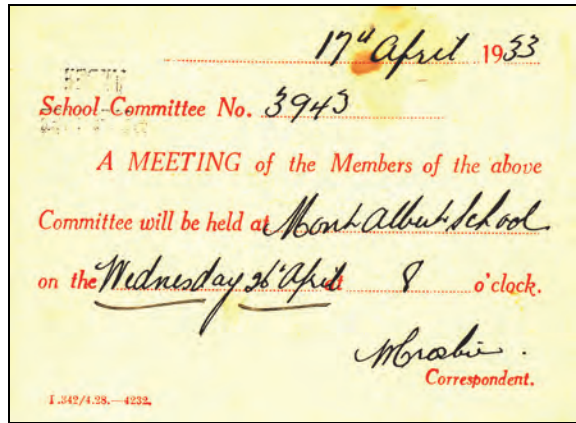 17th April 1933
School Committee No. 3943
A MEETING of the Members of the above
Committee will be held at Mont Albert School
on the Wednesday 26th April at 8 o'clock.
Correspondent.
I.342/4.28.—4232.